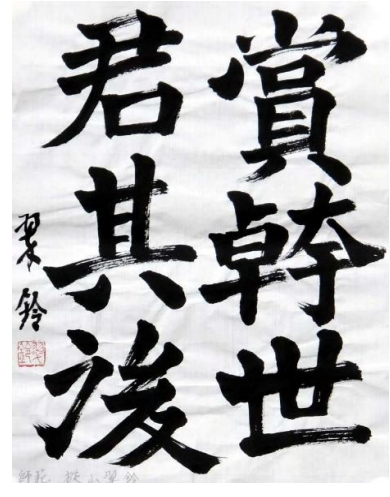 賞幹世
君其後
翠鈴